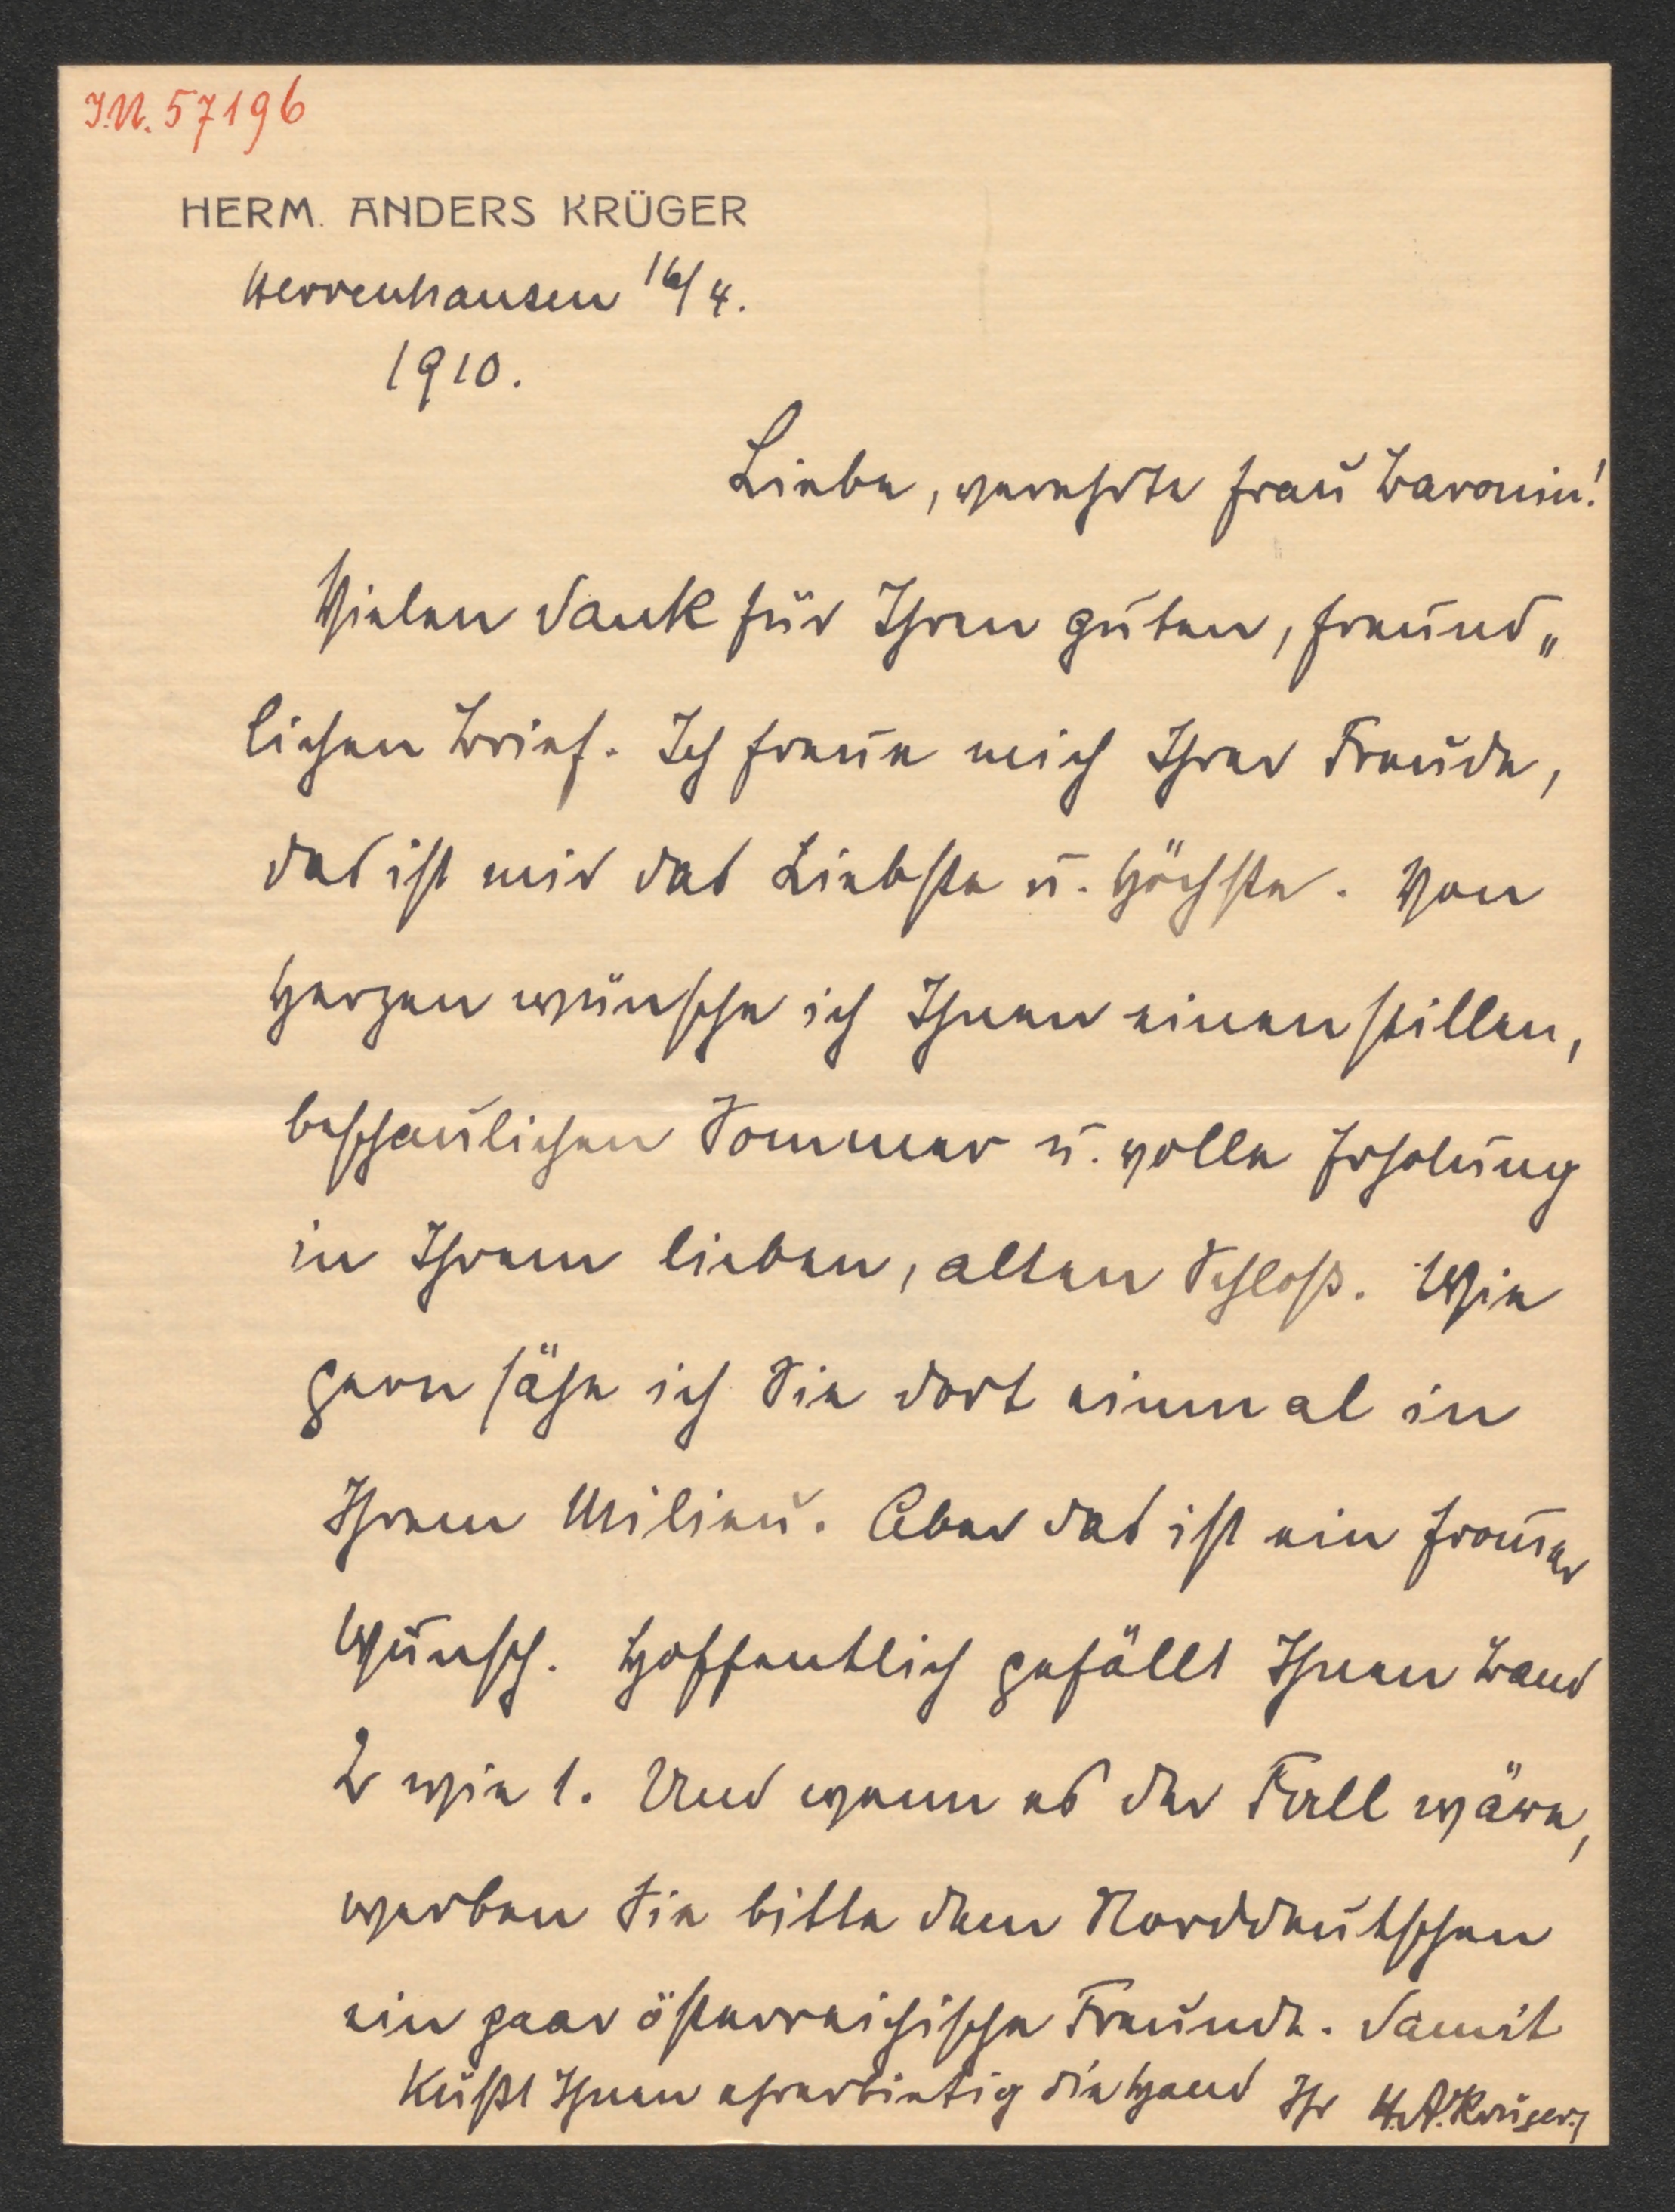 I.N. 57196
HERM. ANDERS KRÜGER
Herrenhausen 16/4.
1910.
Liebe, verehrte Frau Baronin!
Vielen Dank für Ihren guten, freund„
lichen Brief. Ich freue mich Ihrer Freude,
das ist mir das Liebste u. Höchste. Von
Herzen wünsche ich Ihnen einen stillen,
beschaulichen Sommer u. volle Erholung
in Ihrem lieben, alten Schloß. Wie
gern sähe ich Sie dort einmal in
Ihrem Milieu. Aber das ist ein from̅er
Wunsch. Hoffentlich gefällt Ihnen Band
2 wie 1. Und wenn es der Fall wäre,
werben Sie bitte dem Norddeutschen
ein paar österreichische Freunde. Damit
küßt Ihnen ehrerbietig die Hand Ihr H.A. Krüger.